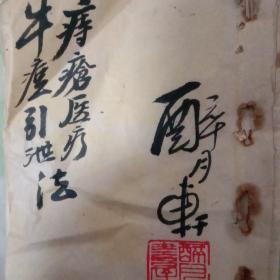 醉月軒
痔瘡医疗
牛痘引泄法